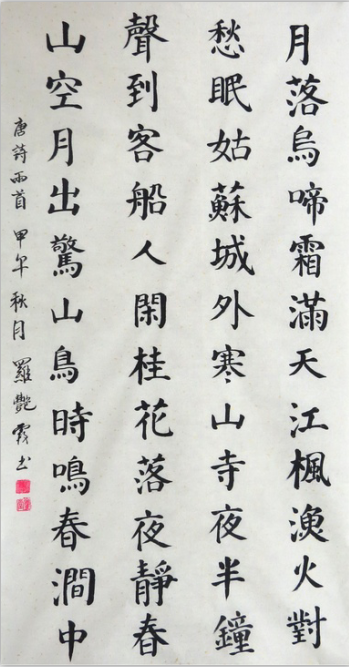 月落烏啼霜滿天江楓漁火對
愁眠姑蘇城外寒山寺夜半鐘
聲到客船人閑桂花落夜靜春
山空月出驚山鳥時鳴春澗中
唐詩兩首 甲午秋月 羅艷霞书